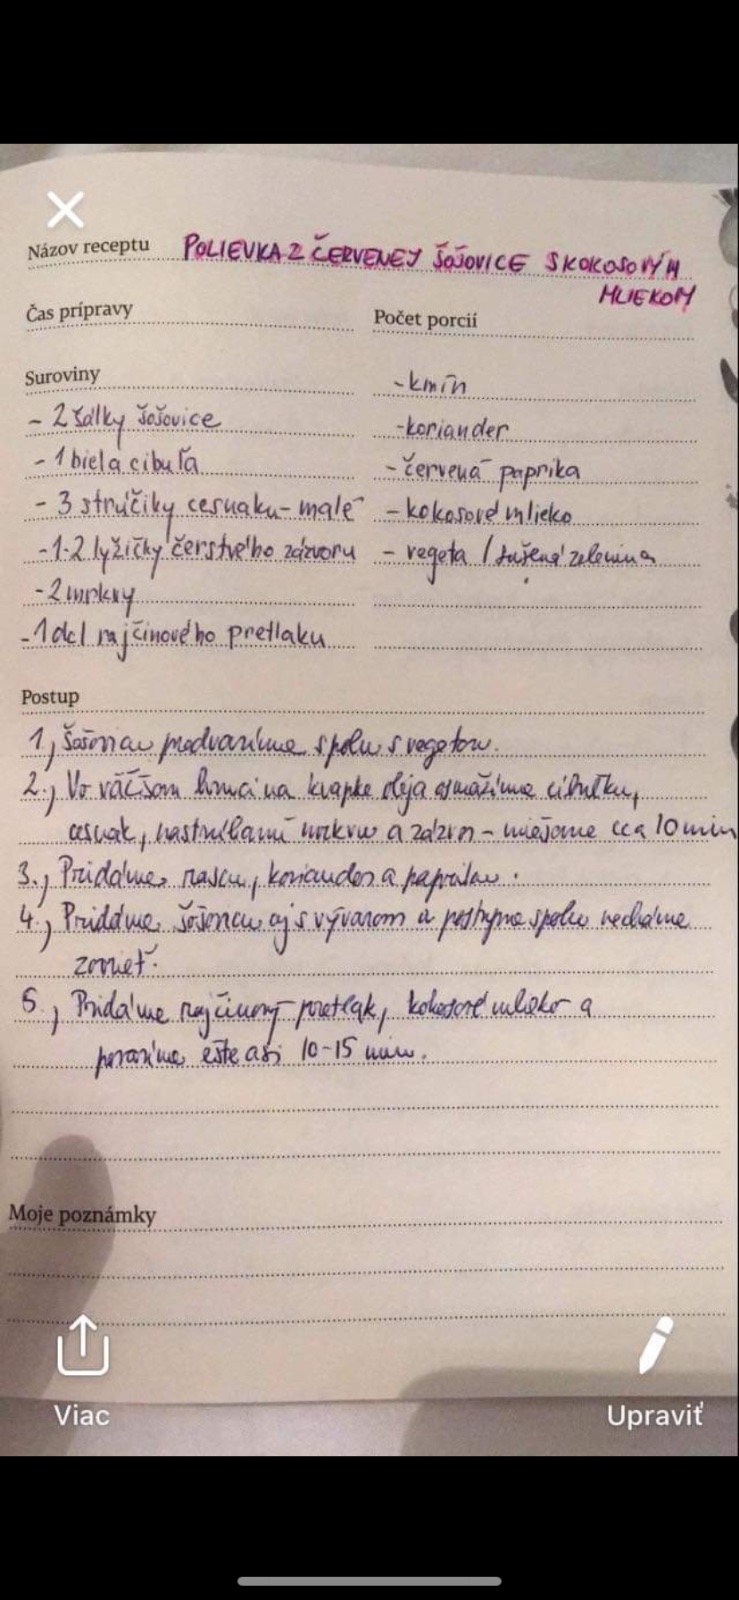 Názov receptu POLIEVKA Z ČERVENEJ ŠOŠOVICE S KOKOSOVÝM
MLIEKOM
Čas prípravy
Počet porcií
Suroviny
- 2 šálky šošovice
- 1 biela cibuľa
- 3 strúčiky cesnaku - malé
- 1-2 lyžičky čerstvého zázvoru
- 2 mrkvy
- 1 dcl rajčinového pretlaku
- kmín
- koriander
- červená paprika
- kokosové mlieko
- vegeta / sušená zelenina
Postup
1., Šošovicu predvaríme spolu s vegetou.
2., Vo väčšom hrnci na kvapke oleja osmažíme cibuľku,
cesnak, nastrúhanú mrkvu a zázvor - miešame cca 10 min
3., Pridáme rascu, koriander a papriku.
4., Pridáme šošovicu aj s vývarom a postupne spolu necháme
zovrieť.
5., Pridáme rajčinový pretlak, kokosové mlieko a
povaríme ešte asi 10-15 min.
Moje poznámky
Viac
Upraviť